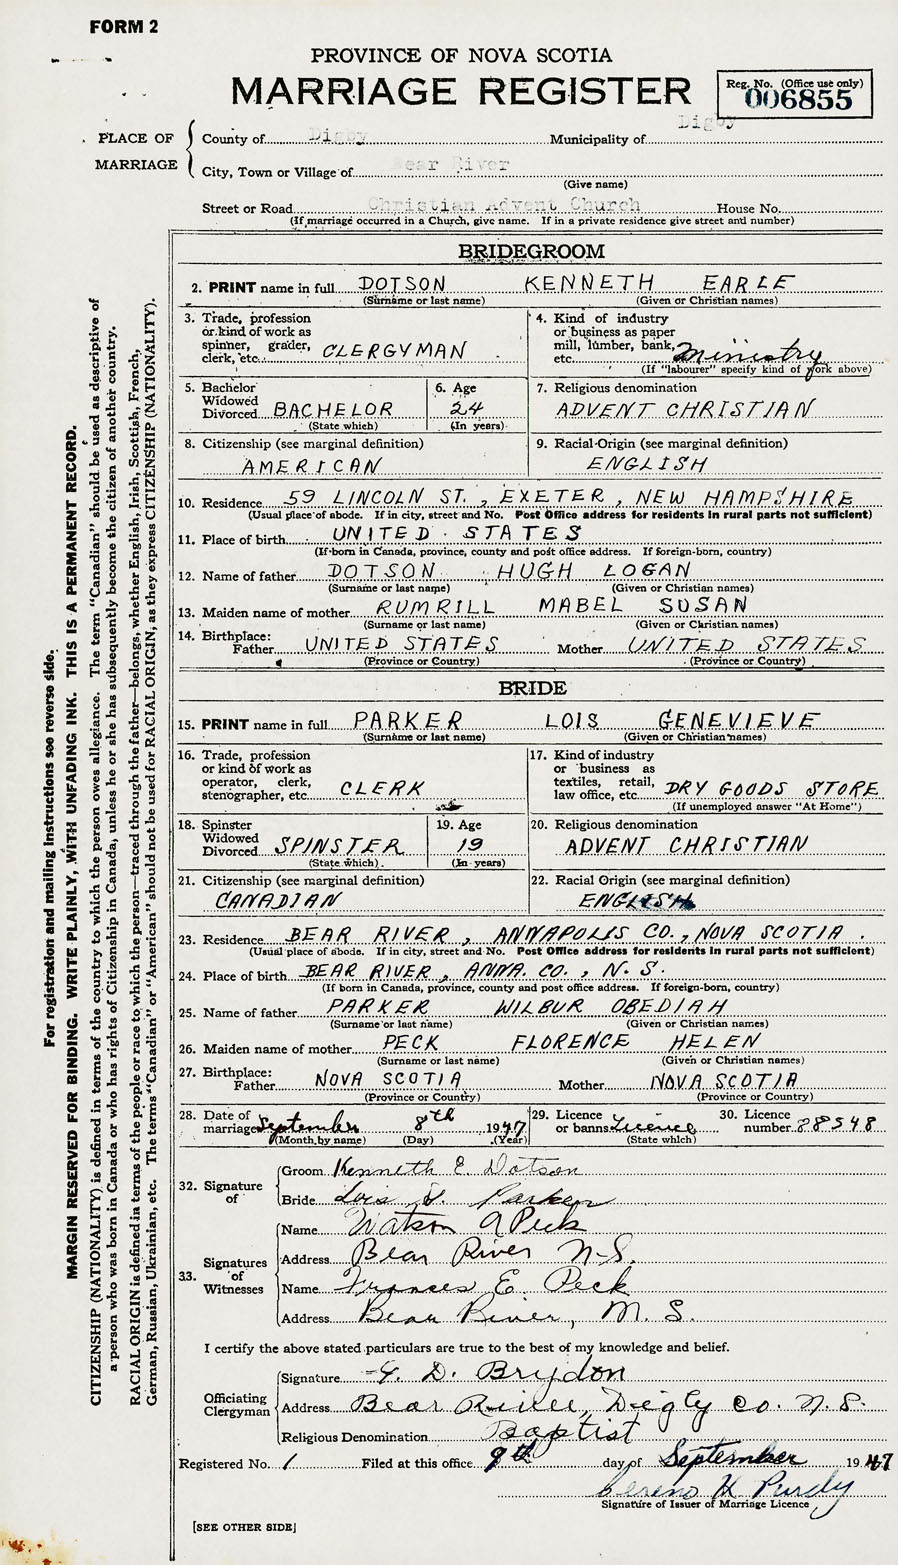 FORM 2
PROVINCE OF NOVA SCOTIA
MARRIAGE REGISTER
Reg. No. (Office use only)
006855
PLACE OF MARRIAGE
County of Digby Municipality of Digby
City, Town or Village of Bear River
(Give name)
Street or Road Christian Advent Church House No.
(If marriage occurred in a Church, give name. If in a private residence give street and number)
BRIDEGROOM
2. PRINT name in full DOTSON KENNETH EARLE
(Surname or last name) (Given or Christian names)
3. Trade, profession or kind of work as spinner, grader, clerk, etc. CLERGYMAN
4. Kind of industry or business as paper mill, lumber, bank, etc. Ministry
(If "labourer" specify kind of work above)
5. Bachelor Widowed Divorced BACHELOR
(State which)
6. Age 24
(In years)
7. Religious denomination
ADVENT CHRISTIAN
8. Citizenship (see marginal definition)
AMERICAN
9. Racial Origin (see marginal definition)
ENGLISH
10. Residence 59 LINCOLN ST., EXETER, NEW HAMPSHIRE
(Usual place of abode. If in city, street and No. Post Office address for residents in rural parts not sufficient)
11. Place of birth UNITED STATES
(If born in Canada, province, county and post office address. If foreign-born, country)
12. Name of father DOTSON HUGH LOGAN
(Surname or last name) (Given or Christian names)
13. Maiden name of mother RUMRILL MABEL SUSAN
(Surname or last name) (Given or Christian names)
14. Birthplace: Father UNITED STATES Mother UNITED STATES
(Province or Country) (Province or Country)
BRIDE
15. PRINT name in full PARKER LOIS GENEVIEVE
(Surname or last name) (Given or Christian names)
16. Trade, profession or kind of work as operator, clerk, stenographer, etc. CLERK
17. Kind of industry or business as textiles, retail, law office, etc. DRY GOODS STORE
(If unemployed answer "At Home")
18. Spinster Widowed Divorced SPINSTER
(State which)
19. Age 19
(In years)
20. Religious denomination
ADVENT CHRISTIAN
21. Citizenship (see marginal definition)
CANADIAN
22. Racial Origin (see marginal definition)
ENGLISH
23. Residence BEAR RIVER, ANNAPOLIS CO., NOVA SCOTIA.
(Usual place of abode. If in city, street and No. Post Office address for residents in rural parts not sufficient)
24. Place of birth BEAR RIVER, ANNA. CO., N. S.
(If born in Canada, province, county and post office address. If foreign-born, country)
25. Name of father PARKER WILBUR OBEDIAH
(Surname or last name) (Given or Christian names)
26. Maiden name of mother PECK FLORENCE HELEN
(Surname or last name) (Given or Christian names)
27. Birthplace: Father NOVA SCOTIA Mother NOVA SCOTIA
(Province or Country) (Province or Country)
28. Date of marriage September 8th 1947
(Month by name) (Day) (Year)
29. Licence or banns Licence
(State which)
30. Licence number 28548
32. Signature of
Groom Kenneth E. Dotson
Bride Lois G. Parker
33. Signatures of Witnesses
Name Watson A Peck
Address Bear River N.S.
Name Frances E. Peck
Address Bear River, N. S.
I certify the above stated particulars are true to the best of my knowledge and belief.
Officiating Clergyman
Signature G. D. Brydon
Address Bear River, Digby Co. N. S.
Religious Denomination Baptist
Registered No. 1 Filed at this office 9th day of September 1947
Sereno H Purdy
Signature of Issuer of Marriage Licence
[SEE OTHER SIDE]
For registration and mailing instructions see reverse side.
MARGIN RESERVED FOR BINDING. WRITE PLAINLY, WITH UNFADING INK. THIS IS A PERMANENT RECORD.
CITIZENSHIP (NATIONALITY) is defined in terms of the country to which the person owes allegiance. The term "Canadian" should be used as descriptive of
a person who was born in Canada or who has rights of Citizenship in Canada, unless he or she has subsequently become the citizen of another country.
RACIAL ORIGIN is defined in terms of the people or race to which the person—traced through the father—belongs, whether English, Irish, Scottish, French,
German, Russian, Ukrainian, etc. The terms "Canadian" or "American" should not be used for RACIAL ORIGIN, as they express CITIZENSHIP (NATIONALITY).